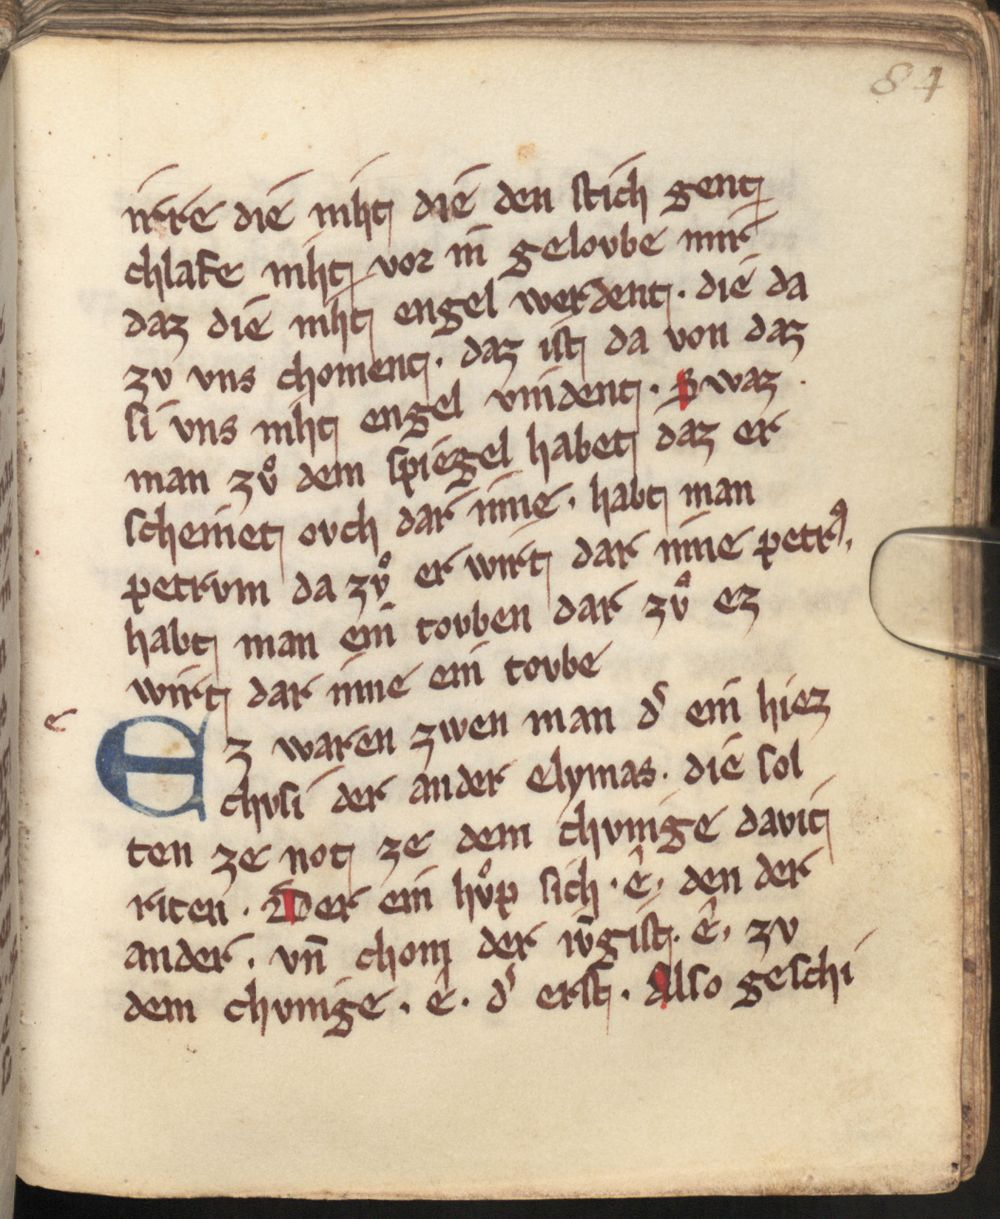 84
irre die niht die den stich gent
chlafe niht vor in geloube mir
daz die niht engel werdent. die da
zv vns choment. daz ist da von daz
si vns niht engel vindent. Swaz
man zvͦ dem spiegel habet daz er
scheinet ovch dar inne. habt man
petrvm da zvͦ er wirt dar inne petrꝰ.
habt man ein tovben dar zvͦ ez
wirt dar inne ein tovbe
e
Ez waren zwen man d͛ ein hiez
chvsi der ander elymas. die sol
ten ze not ze dem chvnige davit
riten. Der ein hvͦp sich. ê. den der
ander. vn̄ chom der ivgist. ê. zv
dem chvnige. e. d͛ erst. Also geschi